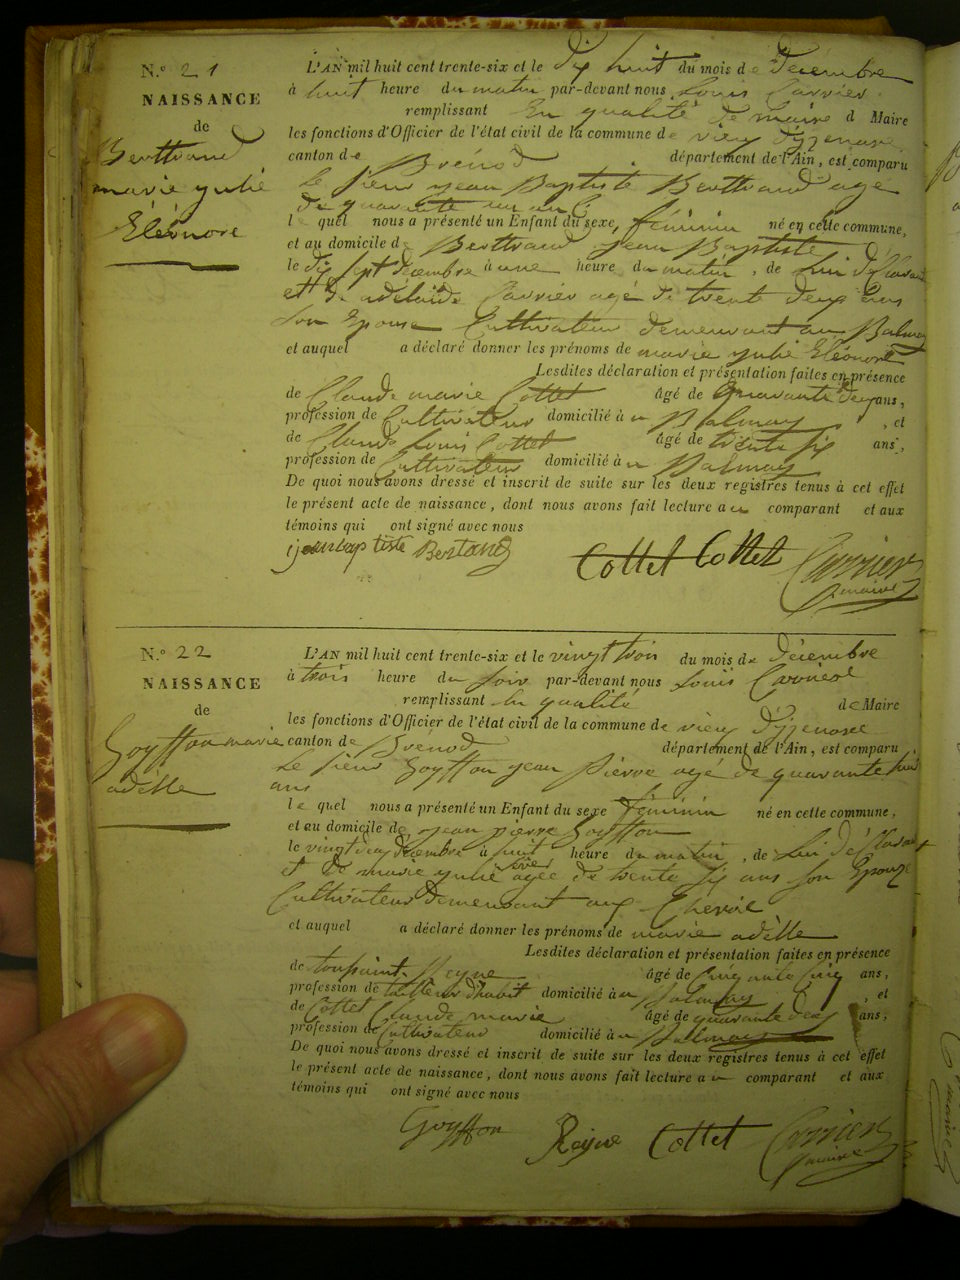 N.° 21
NAISSANCE
de
Berttrand
marie yulie
Éléonore
L'AN mil huit cent trente-six et le dix huit du mois de Décembre
à huit heure du matin par-devant nous Louis Carrier
remplissant En qualité de maire d Maire
les fonctions d'Officier de l'état civil de la commune de vieu d'yzenave
canton de Brénod département de l'Ain, est comparu
le sieur jean Baptiste Berttrand agé
de quarante un an
le quel nous a présenté un Enfant du sexe, féminin né en cette commune,
et au domicile de Berttrand jean Baptiste
le dix sept décembre à une heure du matin, de Lui déclarant
et de adélaide Carrier agé de trente deux ans
son Epouse Cultivateur demeurant au Balmay
et auquel a déclaré donner les prénoms de marie yulie Eléonore
Lesdites déclaration et présentation faites en présence
de Claude marie Cottet âgé de quarante deux ans,
profession de Cultivateur domicilié à u Balmay, et
de Claude Louis Cottet âgé de trente six ans,
profession de Cultivateur domicilié à u Balmay
De quoi nous avons dressé et inscrit de suite sur les deux registres tenus à cet effet
le présent acte de naissance, dont nous avons fait lecture au comparant et aux
témoins qui ont signé avec nous
jean baptiste Bertand Cottet Cottet Carrier
maire
N.° 22
NAISSANCE
de
Goyffon marie
adélle
L'AN mil huit cent trente-six et le vingt trois du mois de Décembre
à trois heure du soir par-devant nous Louis Carrier
remplissant En qualité de Maire
les fonctions d'Officier de l'état civil de la commune de vieu d'yzenave
canton de Brénod département de l'Ain, est comparu
Le sieur Goyffon jean Pierre agé de quarante huit
ans
le quel nous a présenté un Enfant du sexe féminin né en cette commune,
et au domicile de jean pierre Goyffon
le vingt deux décembre à huit heure du matin, de Lui déclarant
et de marie yulie agée de trente six ans son Epouze
Cultivateur demeurant aux
et auquel a déclaré donner les prénoms de marie adélle
Lesdites déclaration et présentation faites en présence
de toussaint Reyne âgé de Cinquante Cinq ans,
profession de tailleur d'habit domicilié à u Balmay, et
de Cottet Claude marie âgé de quarante deux ans,
profession de Cultivateur domicilié à u Balmay
De quoi nous avons dressé et inscrit de suite sur les deux registres tenus à cet effet
le présent acte de naissance, dont nous avons fait lecture au comparant et aux
témoins qui ont signé avec nous
Goyffon Reyne Cottet Carrier
maire